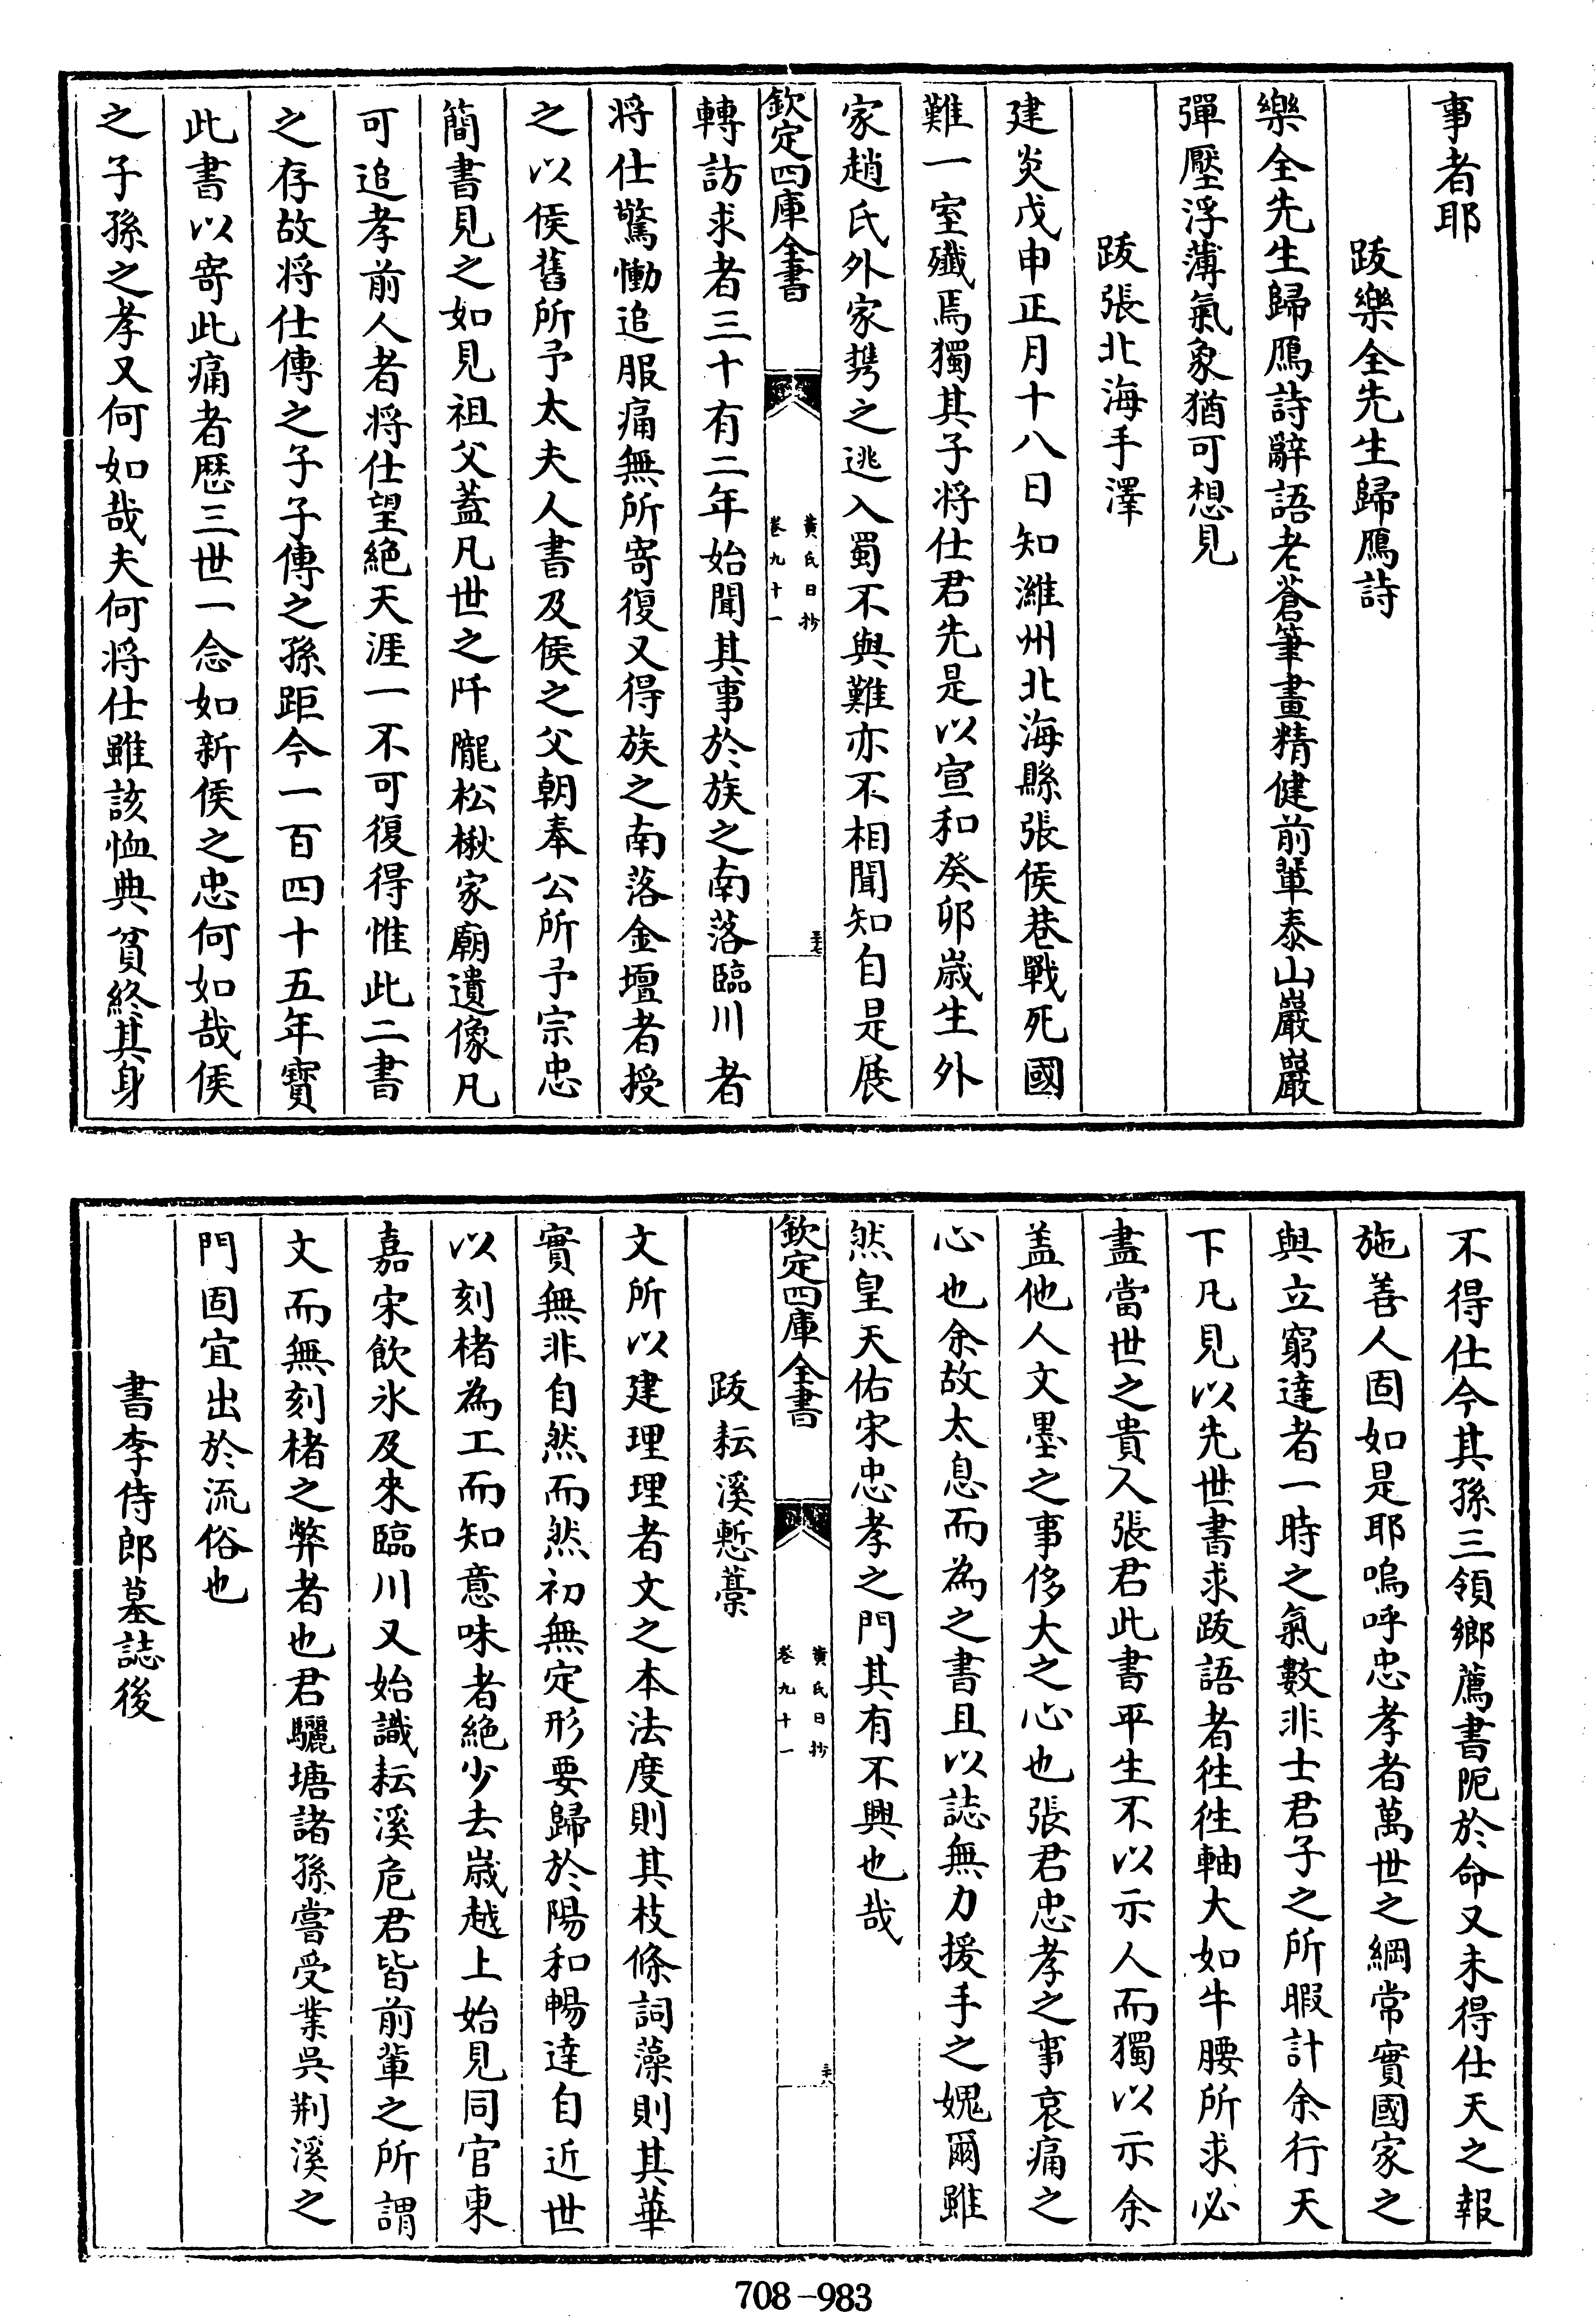 事者耶
跋樂全先生歸鴈詩
樂全先生歸鴈詩辭語老蒼筆畫精健前輩泰山巖巖
彈壓浮薄氣象猶可想見
跋張北海手澤
建炎戊申正月十八日知濰州北海縣張侯巷戰死國
難一室殲焉獨其子將仕君先是以宣和癸卯歳生外
家趙氏外家携之逃入蜀不與難亦不相聞知自是展
欽定四庫全書
黄氏日抄
卷九十一
三十七
轉訪求者三十有二年始聞其事於族之南落臨川者
将仕驚慟追服痛無所寄復又得族之南落金壇者授
之以侯舊所予太夫人書及侯之父朝奉公所予宗忠
簡書見之如見祖父蓋凡世之阡隴松楸家廟遺像凡
可追孝前人者将仕望絶天涯一不可復得惟此二書
之存故将仕傳之子子傳之孫距今一百四十五年寳
此書以寄此痛者歴三世一念如新侯之忠何如哉侯
之子孫之孝又何如哉夫何将仕雖該恤典貧終其身
不得仕今其孫三領鄉薦書阨於命又未得仕天之報
施善人固如是耶嗚呼忠孝者萬世之綱常實國家之
與立窮達者一時之氣數非士君子之所暇計余行天
下凡見以先世書求跋語者徃徃軸大如牛腰所求必
盡當世之貴人張君此書平生不以示人而獨以示余
盖他人文墨之事侈大之心也張君忠孝之事哀痛之
心也余故太息而為之書且以誌無力援手之媿爾雖
然皇天佑宋忠孝之門其有不興也哉
欽定四庫全書
黄氏日抄
卷九十一
三十八
跋耘溪慙藁
文所以建理理者文之本法度則其枝條詞藻則其華
實無非自然而然初無定形要歸於陽和暢達自近世
以刻楮為工而知意味者絶少去歳越上始見同官東
嘉宋飲氷及來臨川又始識耘溪危君皆前輩之所謂
文而無刻楮之弊者也君驪塘諸孫嘗受業吳荆溪之
門固宜出於流俗也
書李侍郎墓誌後
708-983